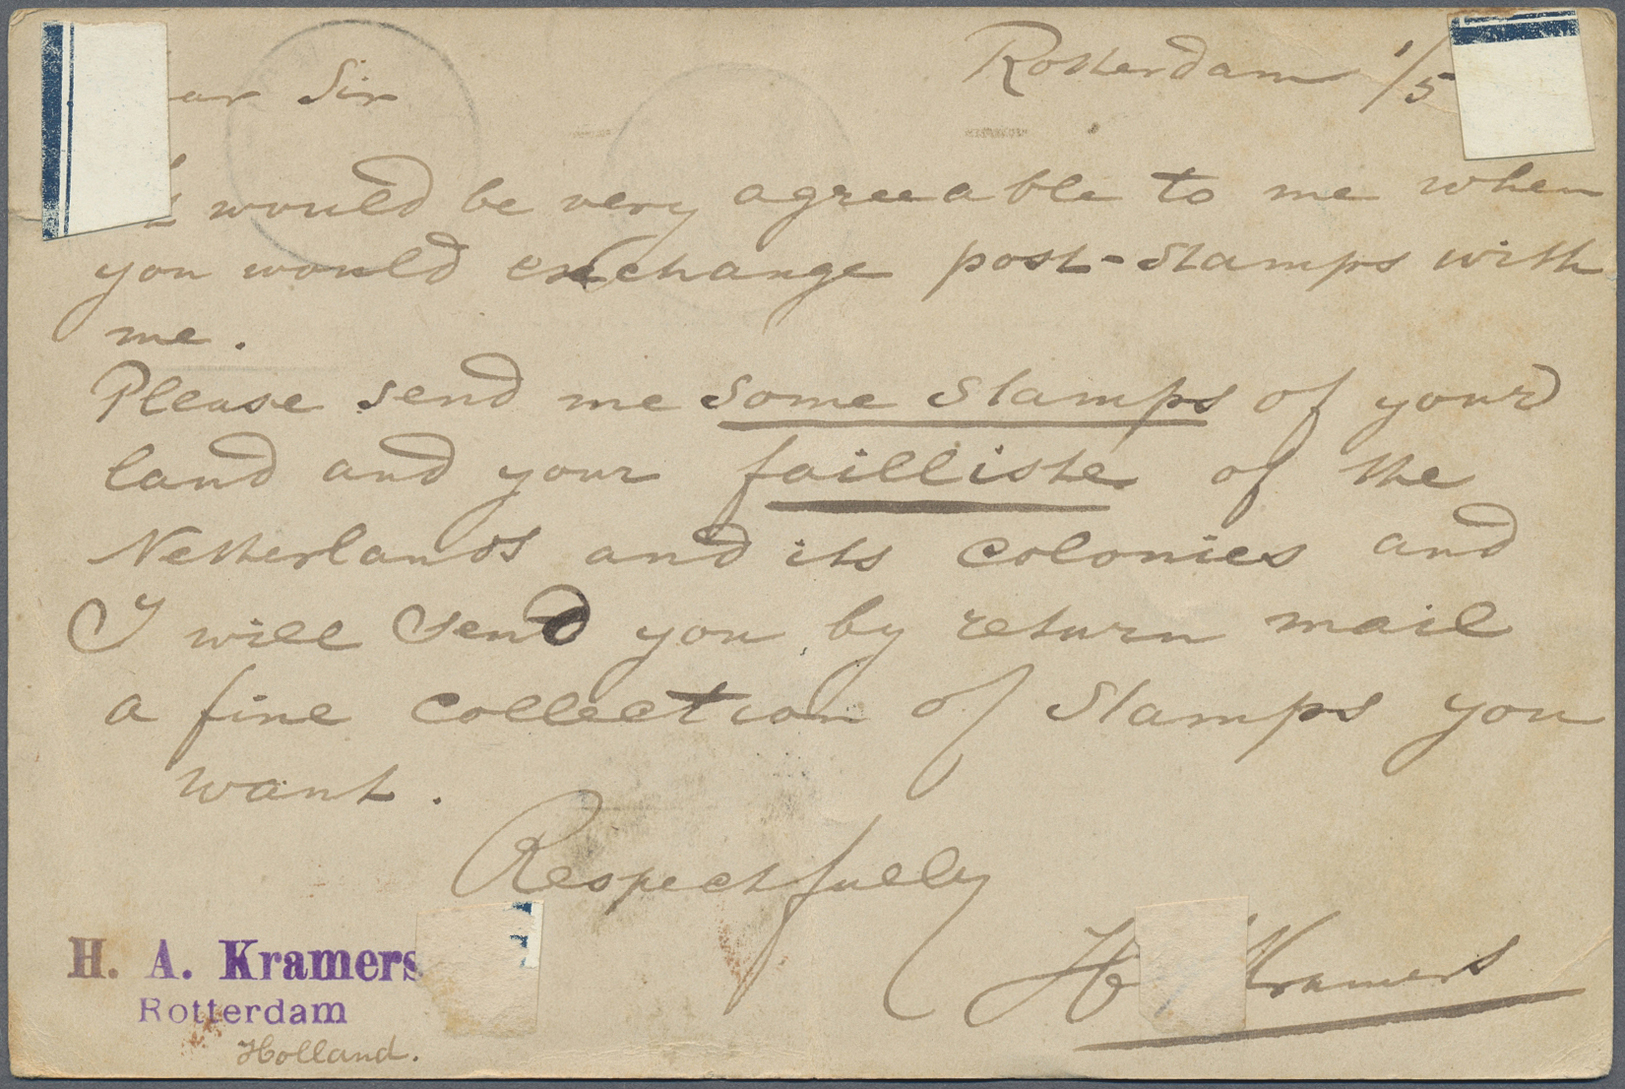 Rotterdam 1/5
ar Sir
would be very agreeable to me when
you would exchange post-stamps with
me.
Please send me some stamps of your
land and your failliste of the
Netherlands and its colonies and
I will send you by return mail
a fine collection of stamps you
want.
Respectfully
H Kramers
H. A. Kramers
Rotterdam
Holland.